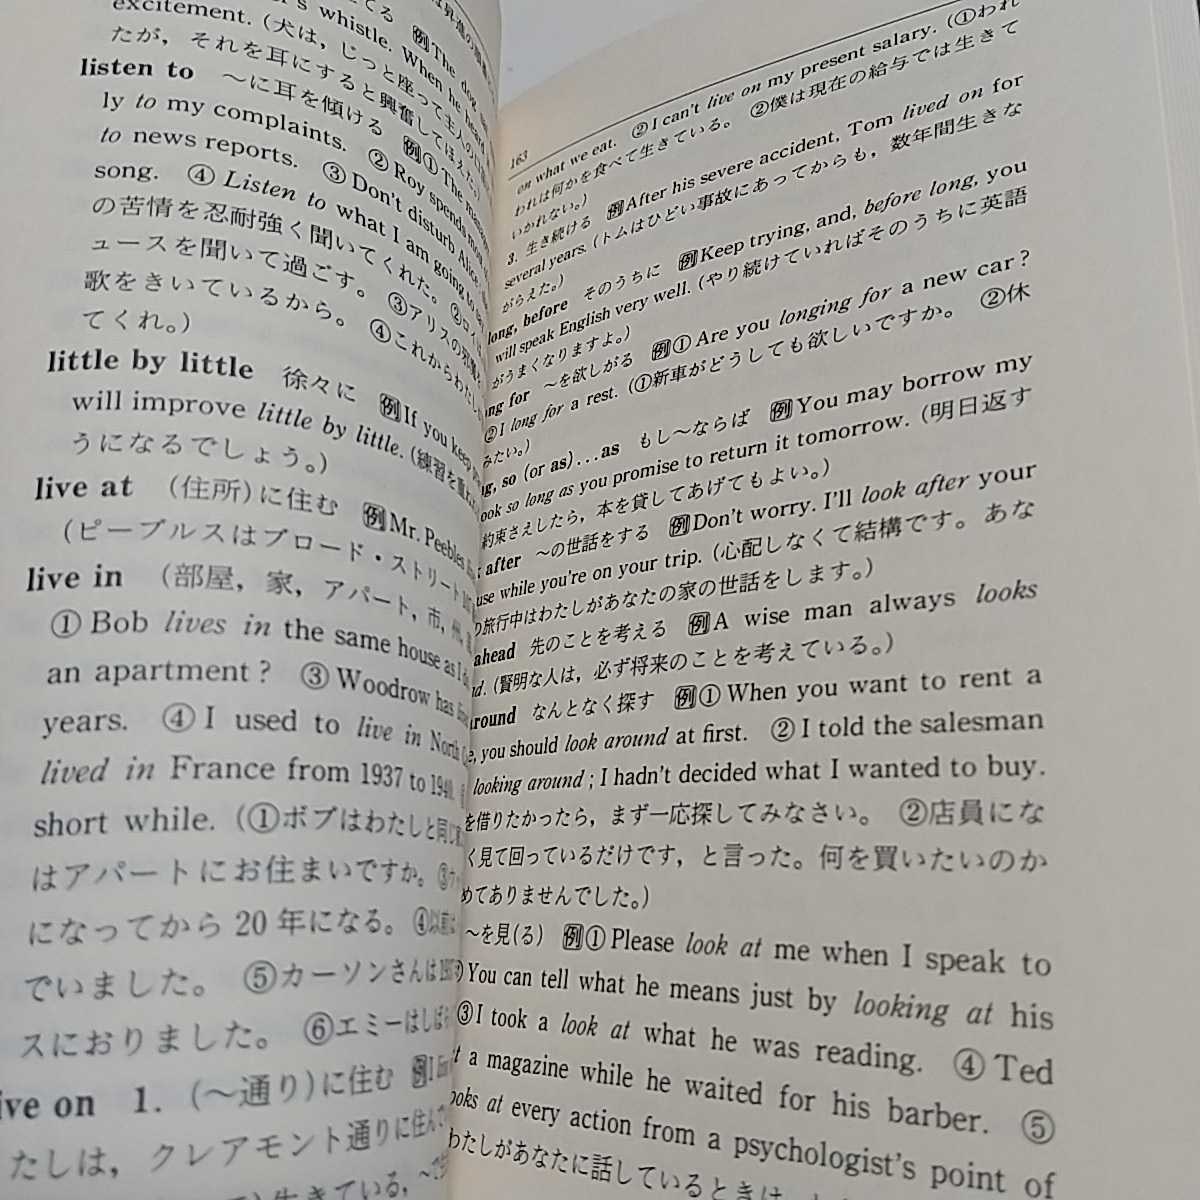 excitement. (犬は，じっと座って主人の
たが，それを耳にすると興奮してほえた。)
listen to ～に耳を傾ける 例①The
ly to my complaints. ②Roy spends
to news reports. ③Don't disturb Alice
song. ④Listen to what I am going to
の苦情を忍耐強く聞いてくれた。②ロイは
ュースを聞いて過ごす。③アリスの邪魔
歌をきいているから。④これからわたしが
てくれ。)
little by little 徐々に 例If you keep
will improve little by little. (練習を
うになるでしょう。)
live at (住所)に住む 例Mr. Peebles
(ピーブルスはブロード・ストリート
live in (部屋，家，アパート，市，州，
①Bob lives in the same house as I
an apartment? ③Woodrow has
years. ④I used to live in North
lived in France from 1937 to 1940.
short while. (①ボブはわたしと同じ
はアパートにお住まいですか。③
になってから 20 年になる。④以前は
でいました。⑤カーソンさんは1937
スにおりました。⑥エミーはしばらく
ive on 1. (～通り)に住む 例I live
たしは，クレアモント通りに住んで
163
on what we eat. ②I can't live on my present salary. (①われ
われは何かを食べて生きている。②僕は現在の給与では生きて
いかれない。)
3. 生き続ける 例After his severe accident, Tom lived on for
several years. (トムはひどい事故にあってからも，数年間生きな
がらえた。)
long, before そのうちに 例Keep trying, and, before long, you
will speak English very well. (やり続けていればそのうちに英語
がうまくなりますよ。)
ong for ～を欲しがる 例①Are you longing for a new car?
②I long for a rest. (①新車がどうしても欲しいですか。②休
みたい。)
ng, so (or as)...as もし～ならば 例You may borrow my
ook so long as you promise to return it tomorrow. (明日返す
約束さえしたら，本を貸してあげてもよい。)
after ～の世話をする 例Don't worry. I'll look after your
use while you're on your trip. (心配しなくて結構です。あな
の旅行中はわたしがあなたの家の世話をします。)
ahead 先のことを考える 例A wise man always looks
d. (賢明な人は，必ず将来のことを考えている。)
around なんとなく探す 例①When you want to rent a
e, you should look around at first. ②I told the salesman
looking around; I hadn't decided what I wanted to buy.
を借りたかったら，まず一応探してみなさい。②店員にな
く見て回っているだけです，と言った。何を買いたいのか
めてありませんでした。)
～を見(る) 例①Please look at me when I speak to
②You can tell what he means just by looking at his
③I took a look at what he was reading. ④Ted
t a magazine while he waited for his barber. ⑤
ooks at every action from a psychologist's point of
わたしがあなたに話しているときは